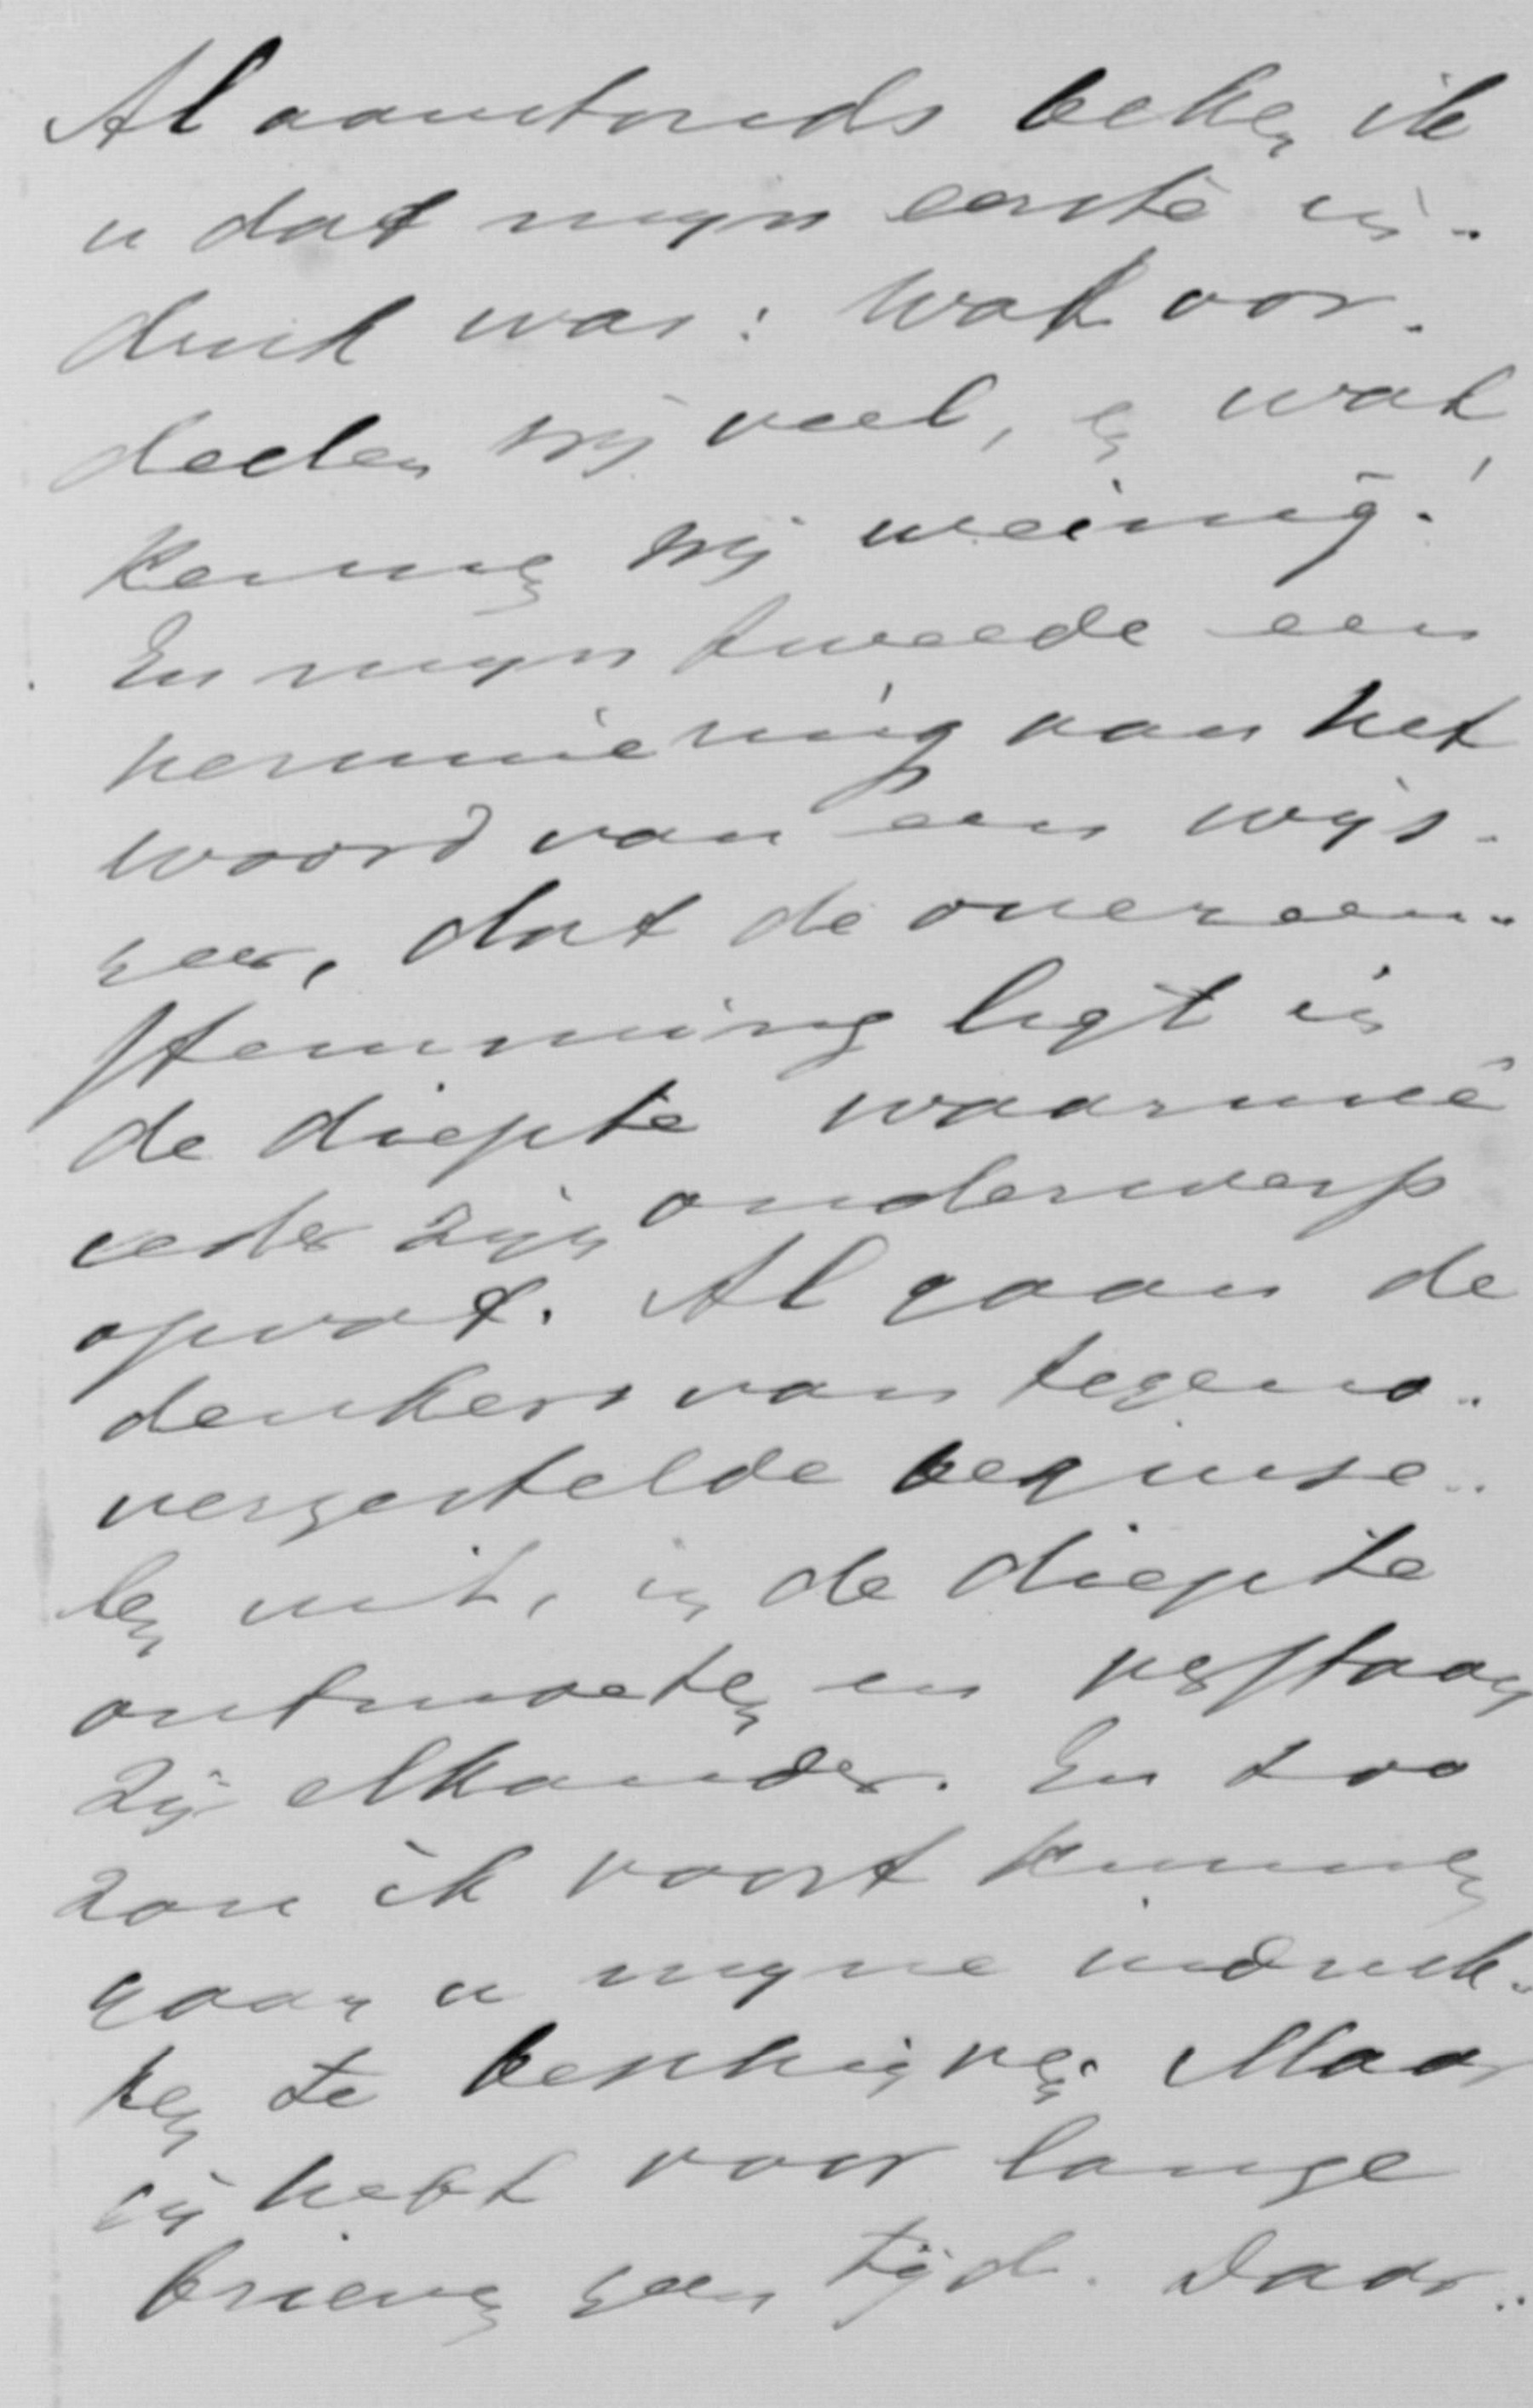 Al aanstonds beken ik
u dat mijn eerste in-
druk was: Wat oor-
deelen wij veel, en wat
kennen wij weinig!
En mijn tweede een
herinnering van het
woord van een wijs-
geer, dat de overeen-
stemming ligt in
de diepte waarmeê
ieder zijn onderwerp
opvat. Al gaan de
denkers van tegeno-
vergestelde beginse-
len uit, in de diepte
ontmoeten en verstaan
zij elkander. En zoo
zou ik voort kunnen
gaan u mijne indruk-
ken te beschrijven. Maar
gij hebt voor lange
brieven geen tijd. Daar-